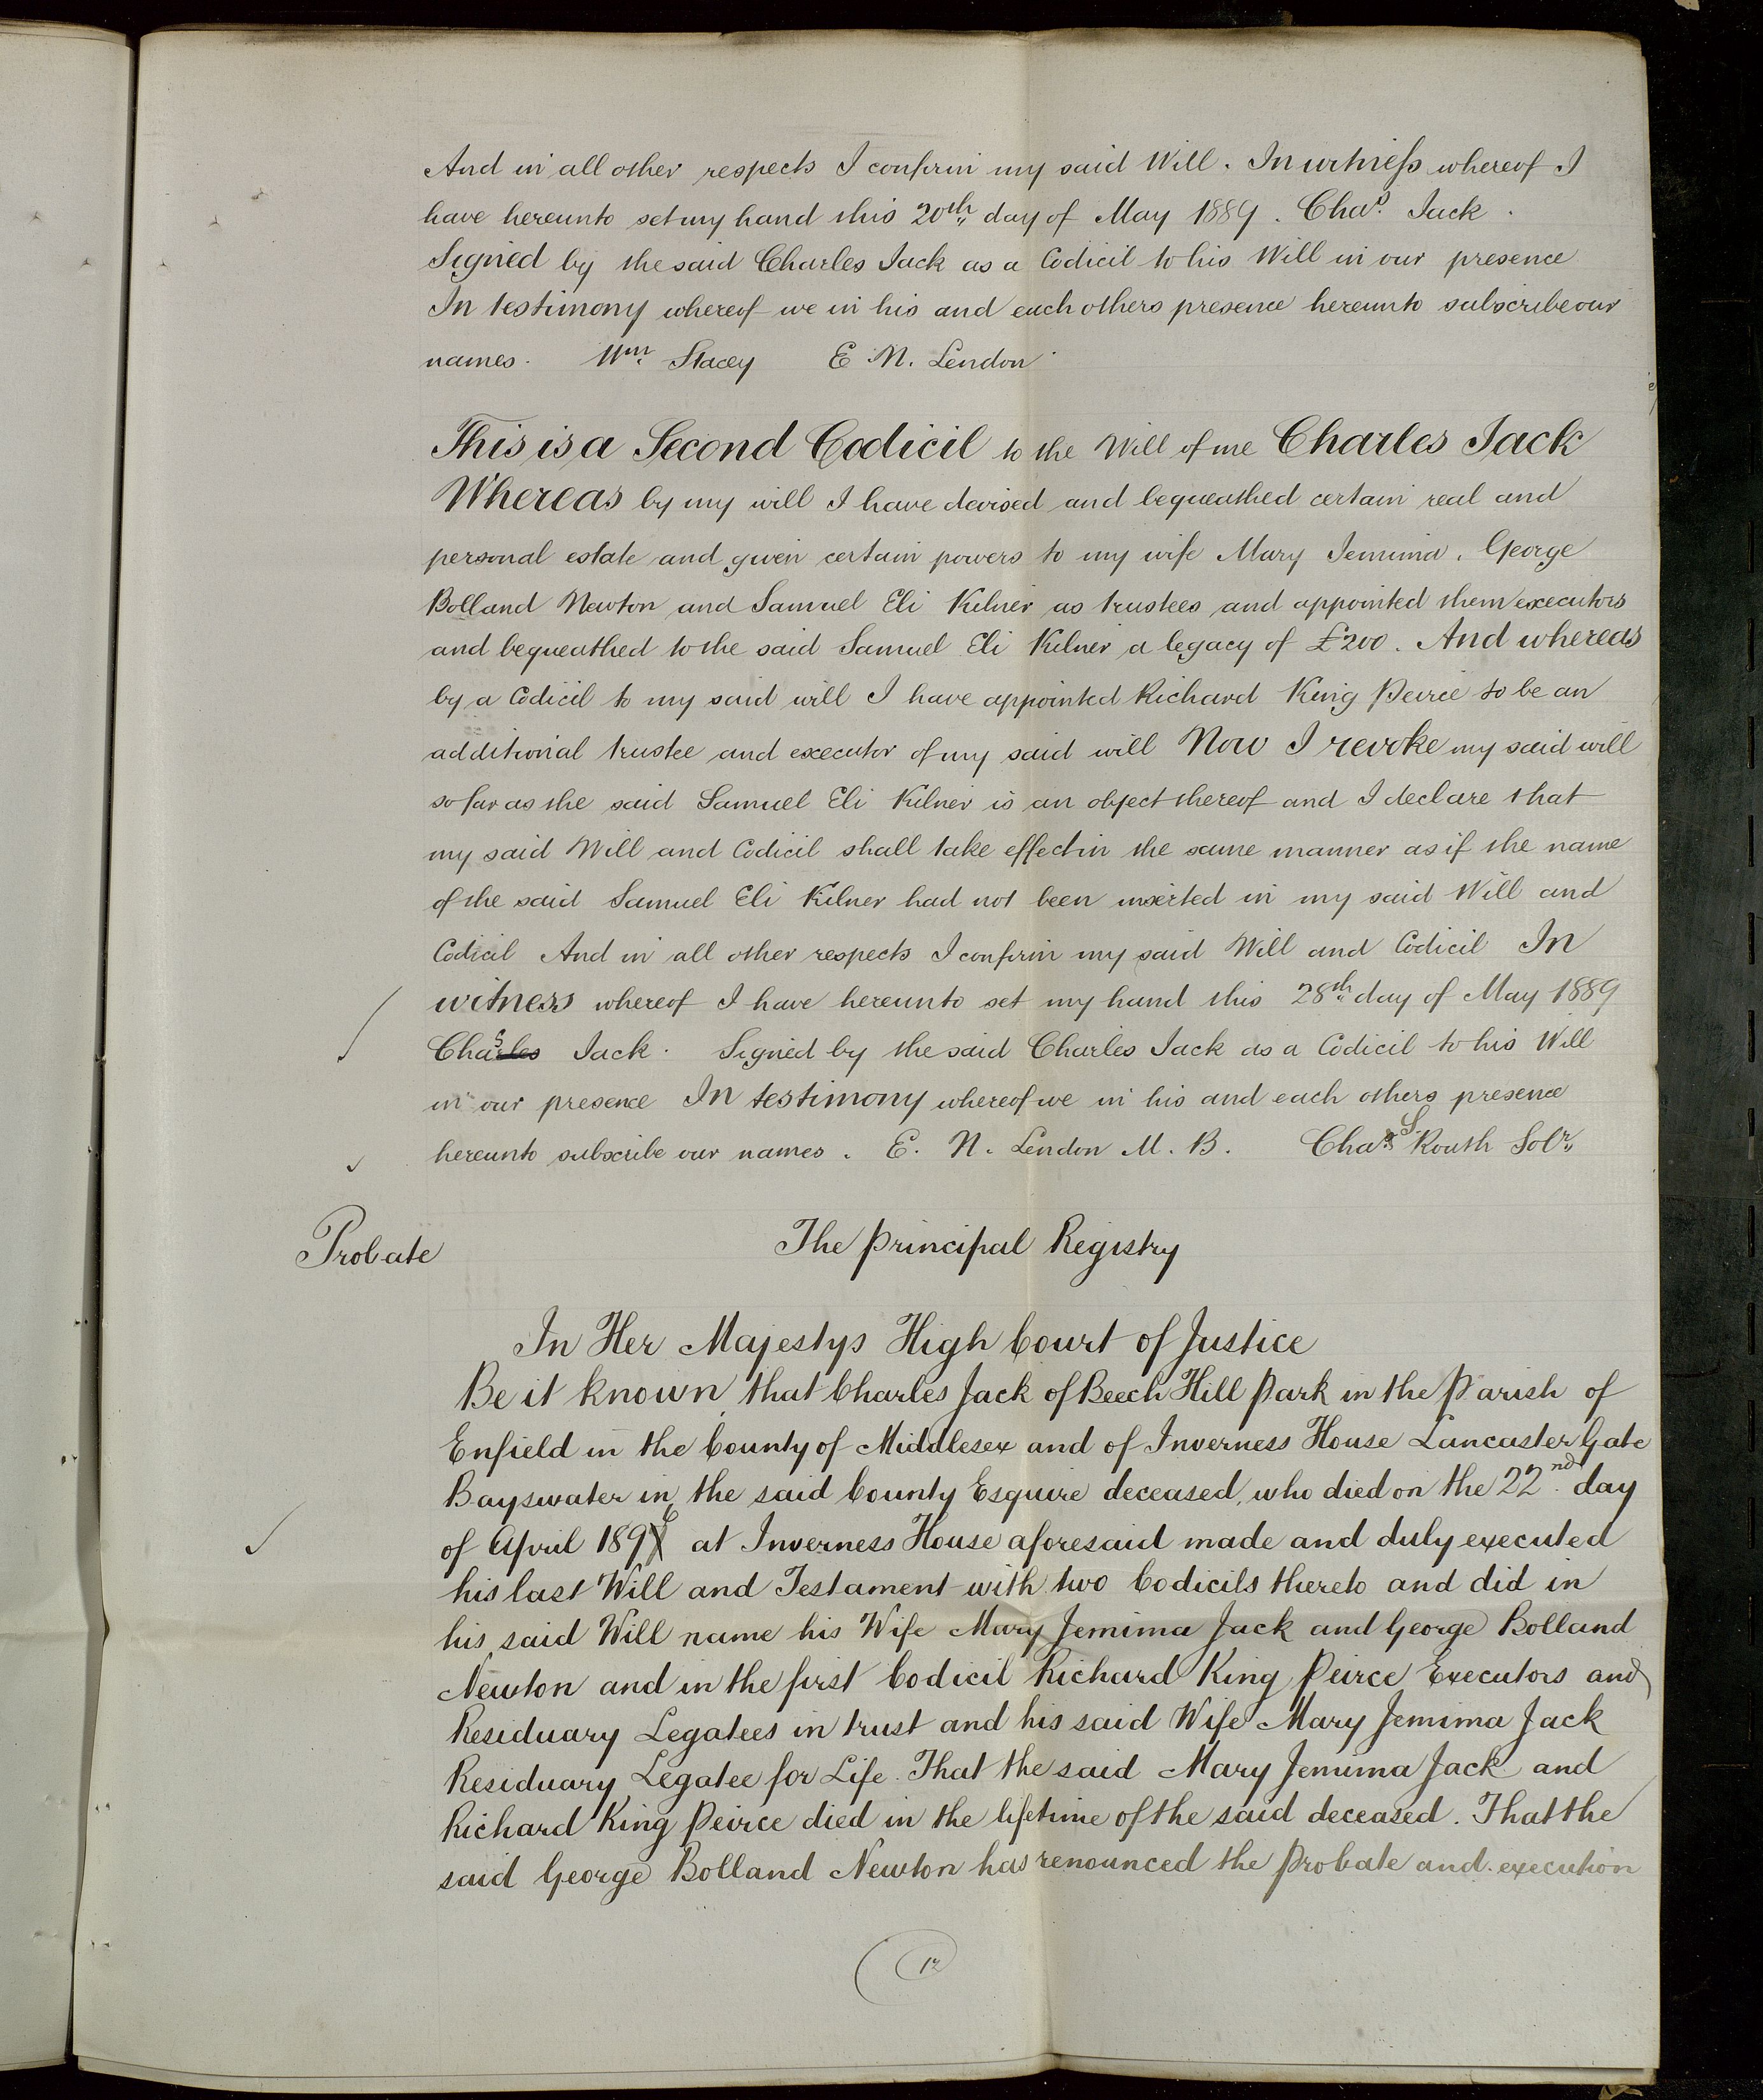 And in all other respects I confirm my said Will. In witness whereof I
have hereunto set my hand this 20th day of May 1889. Chas. Jack.
Signed by the said Charles Jack as a Codicil to his Will in our presence
In testimony whereof we in his and each others presence hereunto subscribe our
names. Wm. Stacey E. N. Lendon.
This is a Second Codicil to the Will of me Charles Jack
Whereas by my will I have devised and bequeathed certain real and
personal estate and given certain powers to my wife Mary Jemima, George
Bolland Newton and Samuel Eli Kilner as trustees and appointed them executors
and bequeathed to the said Samuel Eli Kilner a legacy of £200. And whereas
by a Codicil to my said will I have appointed Richard King Peirce to be an
additional trustee and executor of my said will Now I revoke my said will
so far as the said Samuel Eli Kilner is an object thereof and I declare that
my said Will and Codicil shall take effect in the same manner as if the name
of the said Samuel Eli Kilner had not been inserted in my said Will and
Codicil And in all other respects I confirm my said Will and Codicil In
witness whereof I have hereunto set my hand this 28th day of May 1889
Chas Jack. Signed by the said Charles Jack as a Codicil to his Will
in our presence In testimony whereof we in his and each others presence
hereunto subscribe our names. E. N. Lendon M. B. Chas S. Routh Solr.
Probate The Principal Registry
In Her Majestys High Court of Justice
Be it known, that Charles Jack of Beech Hill Park in the Parish of
Enfield in the County of Middlesex and of Inverness House Lancaster Gate
Bayswater in the said County Esquire deceased, who died on the 22nd. day
of April 1896 at Inverness House aforesaid made and duly executed
his last Will and Testament with two Codicils thereto and did in
his said Will name his Wife Mary Jemima Jack and George Bolland
Newton and in the first Codicil Richard King Peirce Executors and
Residuary Legatees in trust and his said Wife Mary Jemima Jack
Residuary Legatee for Life. That the said Mary Jemima Jack and
Richard King Peirce died in the lifetime of the said deceased. That the
said George Bolland Newton has renounced the Probate and execution
12